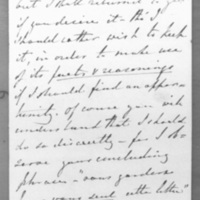 but I shall return it to you
if you desire it. tho' I
should rather wish to keep
it, in order to make use
of its facts & reasonings
if I should find an opportu-
nity. Of course you will
understand that I should
do so discreetly – for I ob-
serve your concluding
phrase: "vous garderez
pour vous seul cette lettre"